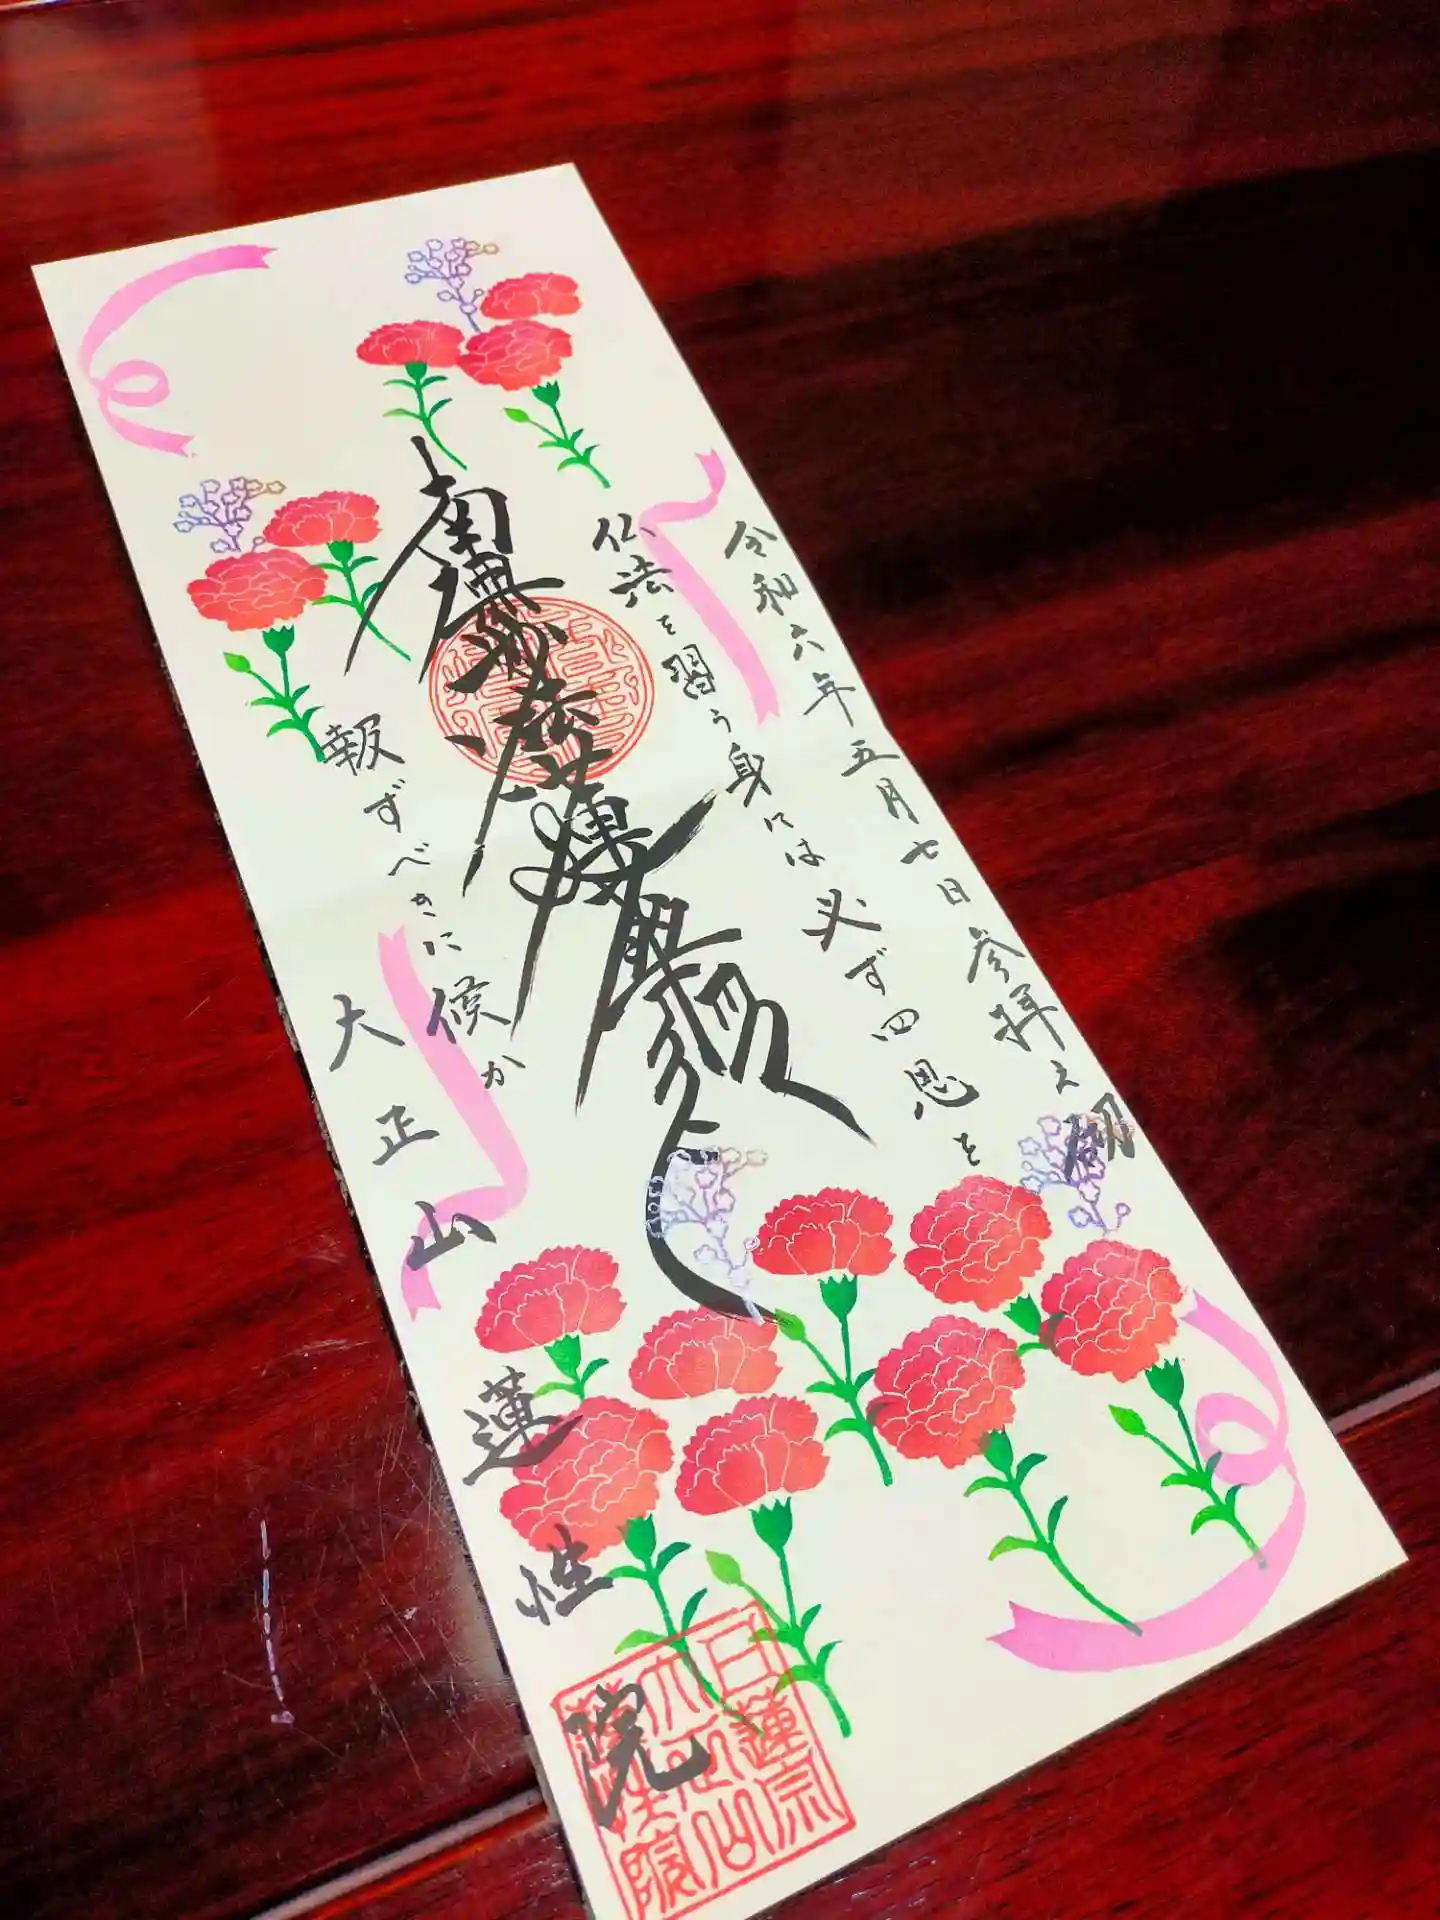 令和六年五月七日参拝之砌
仏法を習う身には必ず四恩を
南無妙法蓮華経
報ずべきに候か
大正山 蓮性院
日蓮宗
大正山
蓮性院